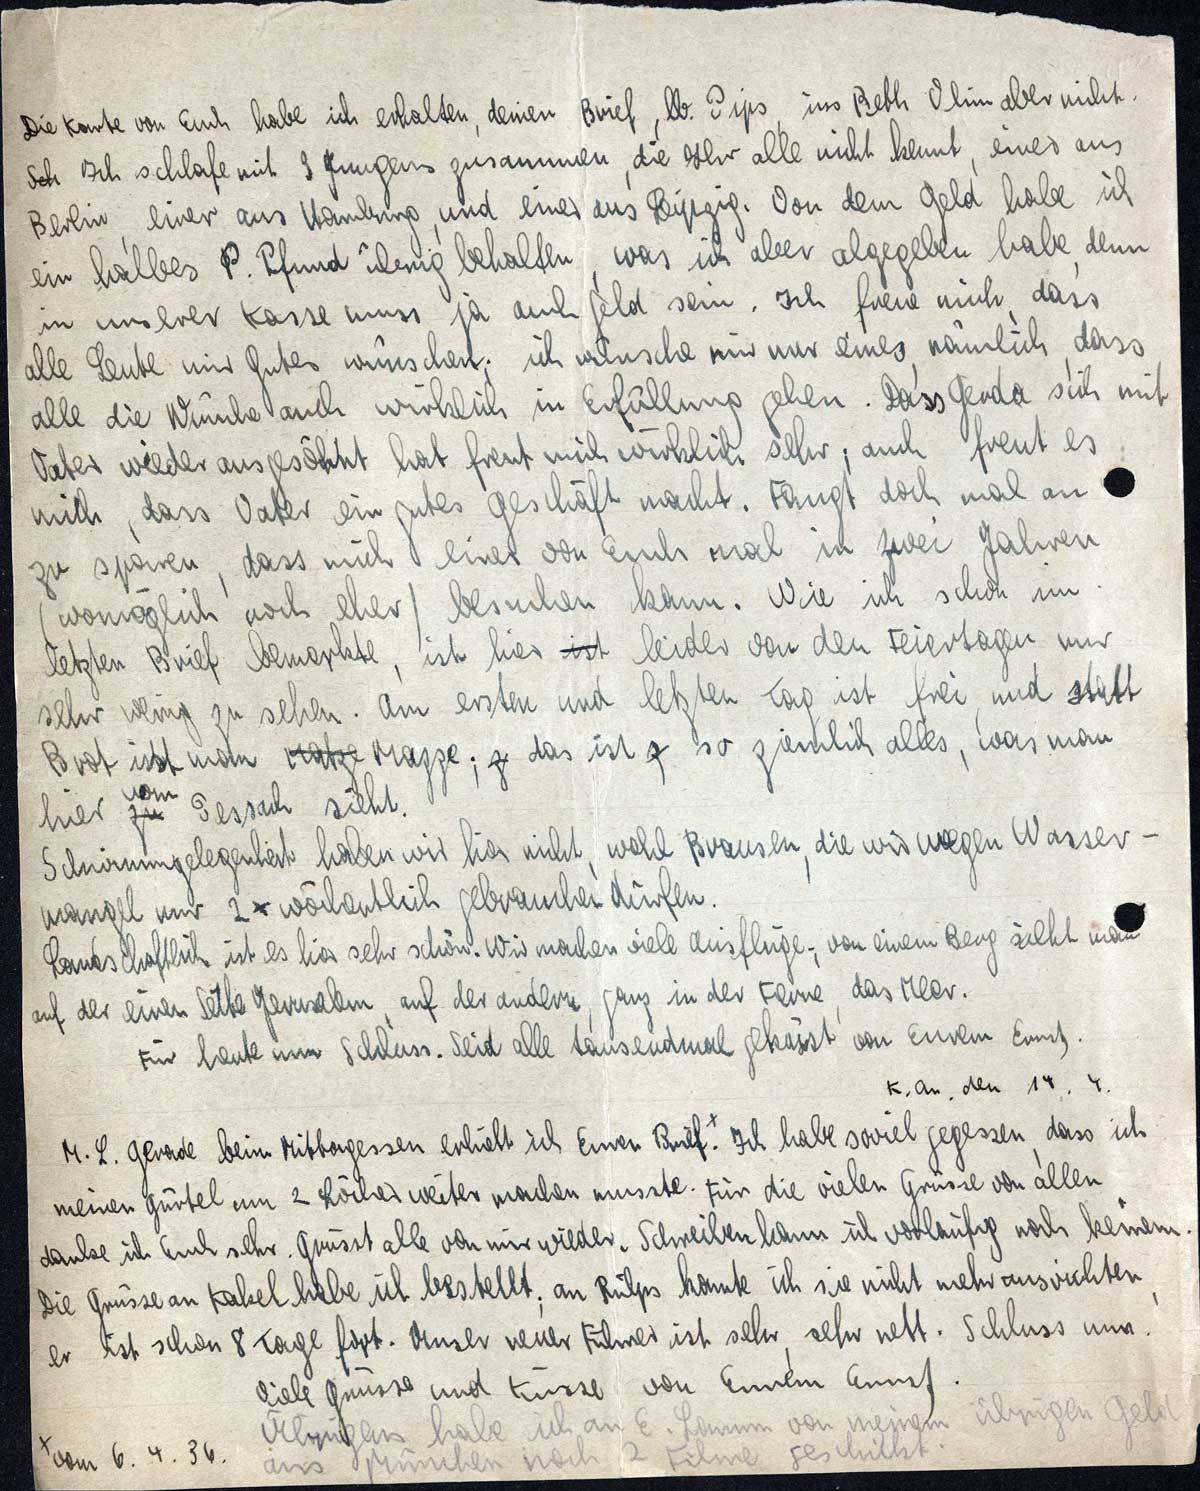 Die Karte von Euch habe ich erhalten, deinen Brief, lb. Pips, ins Beth Olim aber nicht.
Sch Ich schlafe mit 3 Jungens zusammen, die Ihr alle nicht kennt, einer aus
Berlin, einer aus Hamburg, und einer aus Leipzig. Von dem Geld habe ich
ein halbes P. Pfund übrig behalten, was ich aber abgegeben habe, denn
in unserer Kasse muss ja auch Geld sein. Ich freue mich, dass
alle Leute mir Gutes wünschen; ich wünsche mir nur eines, nämlich, dass
alle die Wünsche auch wirklich in Erfüllung gehen. Dass Gerda sich mit
Vater wieder ausgesöhnt hat freut mich wirklich sehr; auch freut es
mich, dass Vater ein gutes Geschäft macht. Fangt doch mal an
zu sparen, dass mich einer von Euch mal in zwei Jahren
(womöglich noch eher) besuchen kann. Wie ich schon im
letzten Brief bemerkte, ist hier ist leider von den Feiertagen nur
sehr wenig zu sehen. Am ersten und letzten Tag ist frei und statt
Brot isst man Matze Mazze; z das ist z so ziemlich alles, was man
hier zu vom Pessach sieht.
haben wir hier nicht, wohl Brausen, die wir wegen Wasser-
mangel nur 2 x wöchentlich gebrauchen dürfen.
Landschaftlich ist es hier sehr schön. Wir machen viele Ausflüge; von einem Berg sieht man
auf der einen Seite Jerusalem, auf der andern, ganz in der Ferne, das Meer.
Für heute nun Schluss. Seid alle tausendmal geküsst von Eurem Ernst.
K. An. den 14. 4.
M. L. Gerade beim Mittagessen erhielt ich Euren Brief.+ Ich habe soviel gegessen, dass ich
meinen Gürtel um 2 Löcher weiter machen musste. Für die vielen Grüsse von allen
danke ich Euch sehr. Grüsst alle von mir wieder. Schreiben kann ich vorläufig noch keinem.
Die Grüsse an Kabel habe ich bestellt; an Rülps konnte ich sie nicht mehr ausrichten,
er ist schon 8 Tage fort. Unser neuer Führer ist sehr, sehr nett. Schluss nun.
Viele Grüsse und Küsse von Eurem Ernst.
Übrigens habe ich an E. von meinem übrigen Geld
aus München noch 2 Filme geschickt.
+ vom 6. 4. 36.